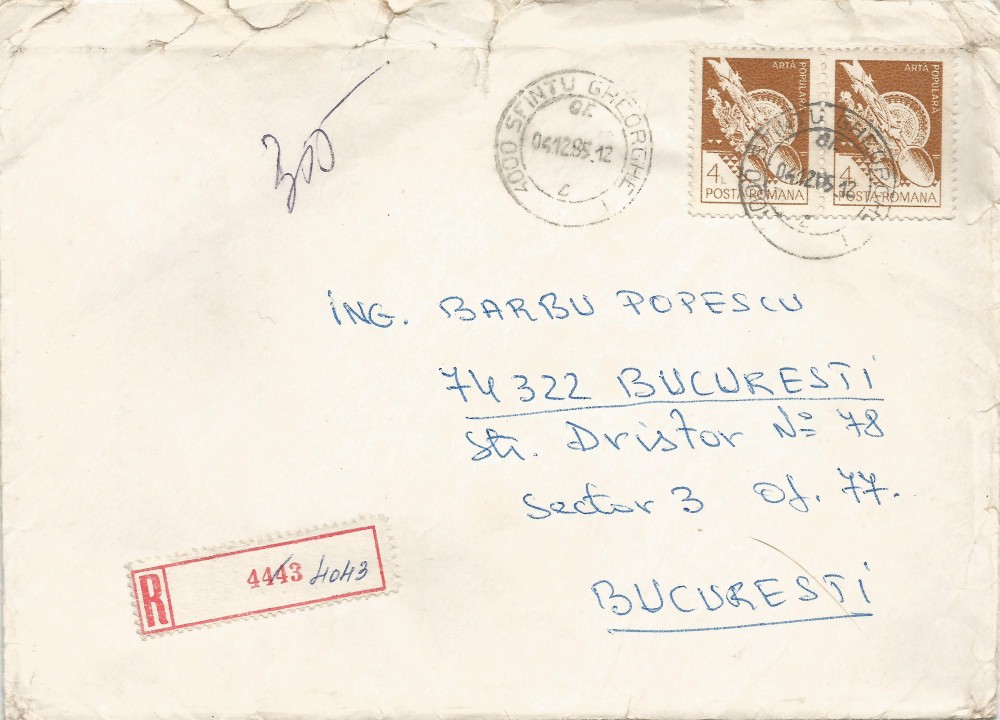 4000 SFINTU GHEORGHE
04.12.85.12
ARTĂ POPULARĂ
4L
POSTA ROMANA
ARTĂ POPULARĂ
4L
POSTA ROMANA
4000 SFINTU GHEORGHE
04.12.85.12
ING. BARBU POPESCU
74322 BUCUREȘTI
Str. Dristor No 78
Sector 3 Of. 77.
BUCUREȘTI
R 4443 4043